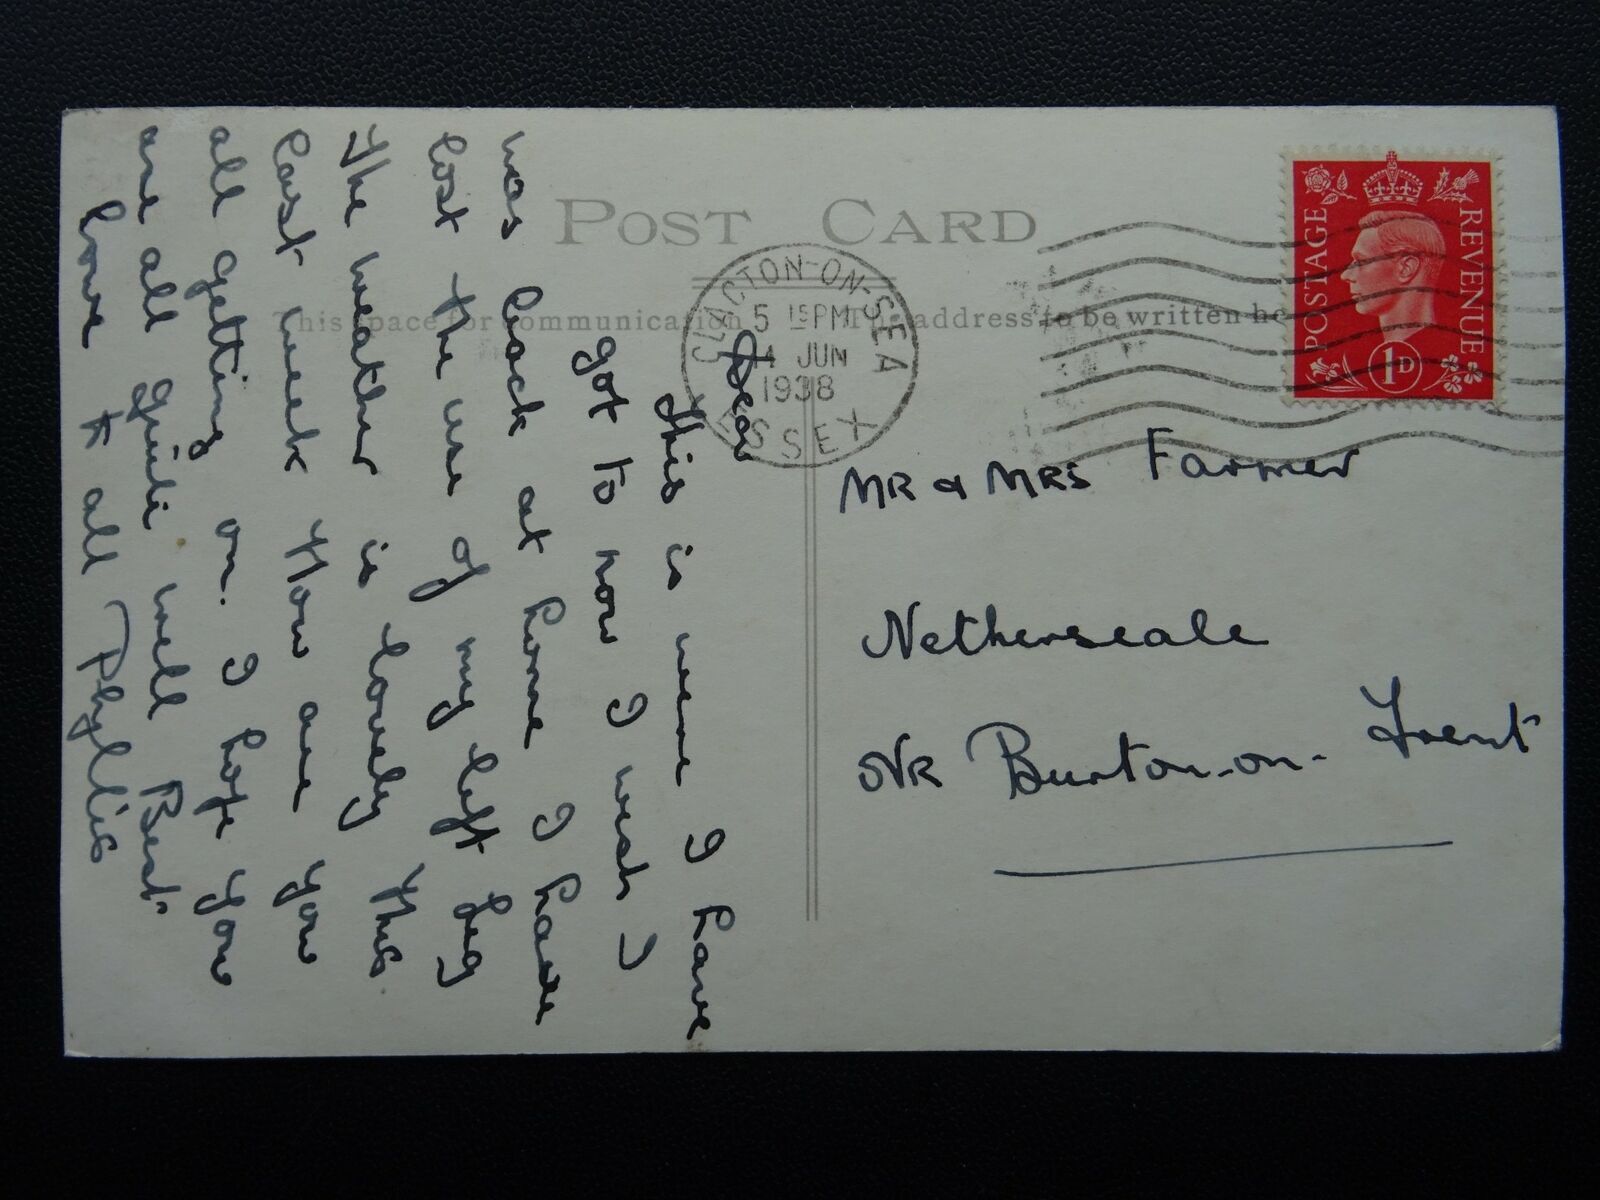 POST CARD
This space for communication The address to be written he
CLACTON-ON-SEA
5 15PM
JUN
1938
ESSEX
POSTAGE REVENUE
1D
Dear
This is were I have
got to now I wish I
was back at home I have
lost the use of my left leg
The weather is lovely this
last week How are you
all getting on. I hope you
are all quite well Best
love to all Phyllis
MR & MRS Farmer
Netherseale
NR Burton-on-Trent